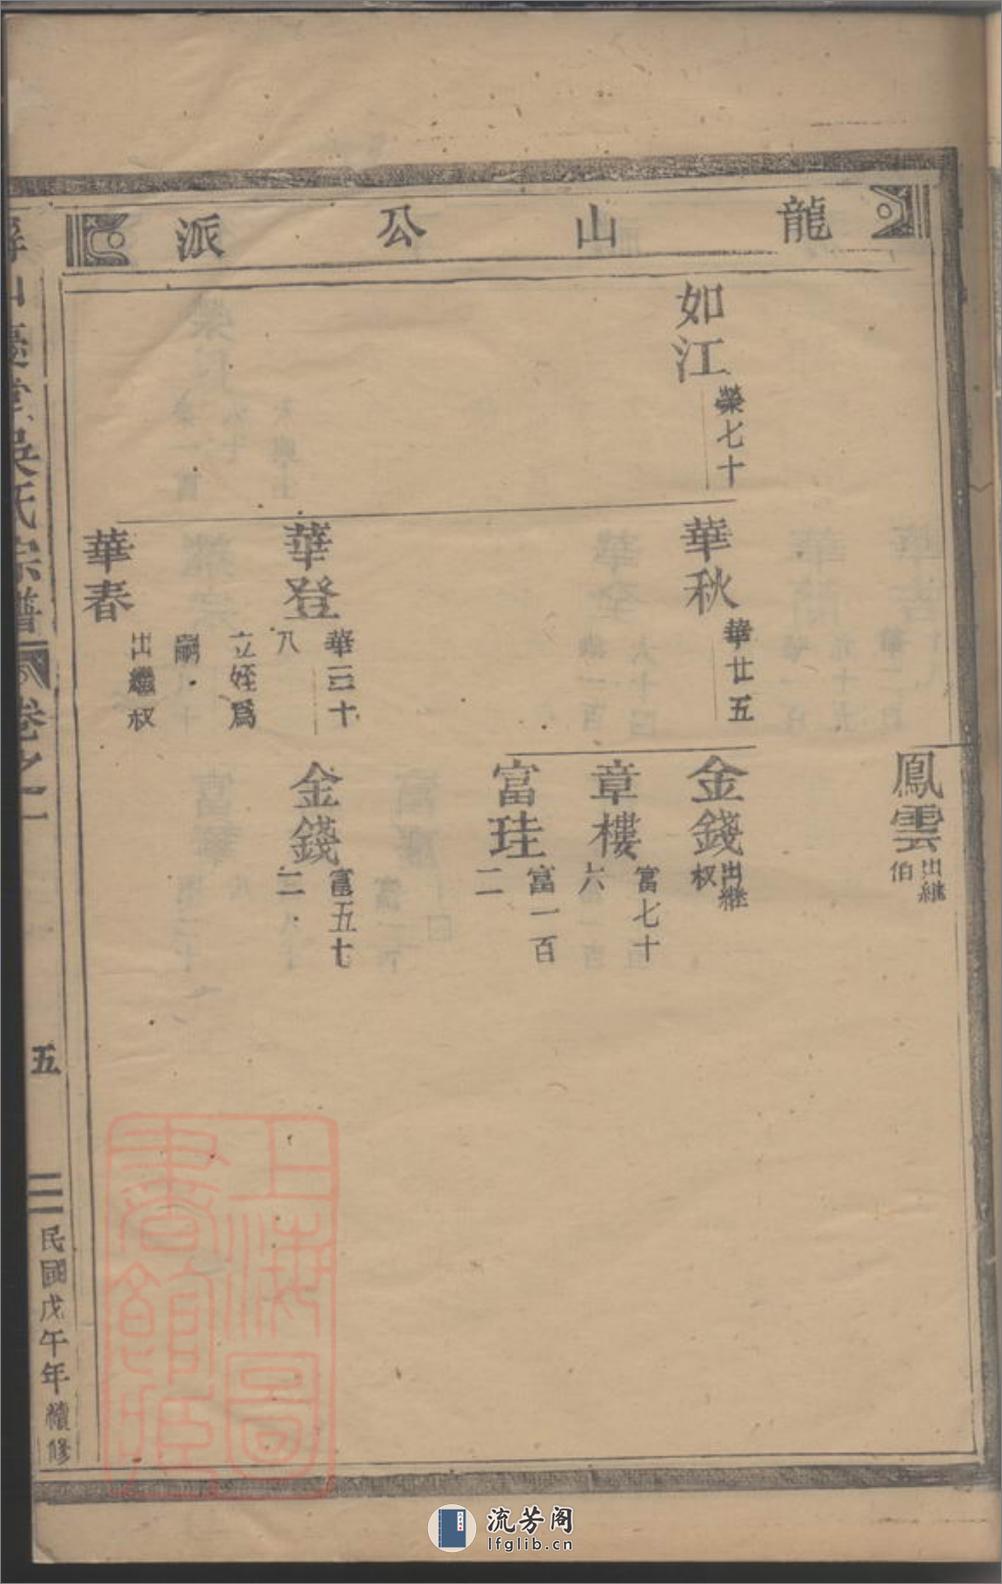 龍山公派
鳳雲
出繼
伯
如江
榮七十
華秋
華廿五
金錢
出繼
叔
章樓
富七十
六
富珪
富一百
二
華登
華三十
八
立姪爲
嗣
金錢
富五七
二
華春
出繼叔
吳氏宗譜
卷之一
五
民國戊午年續修
上海圖書館藏
流芳阁
lfglib.cn